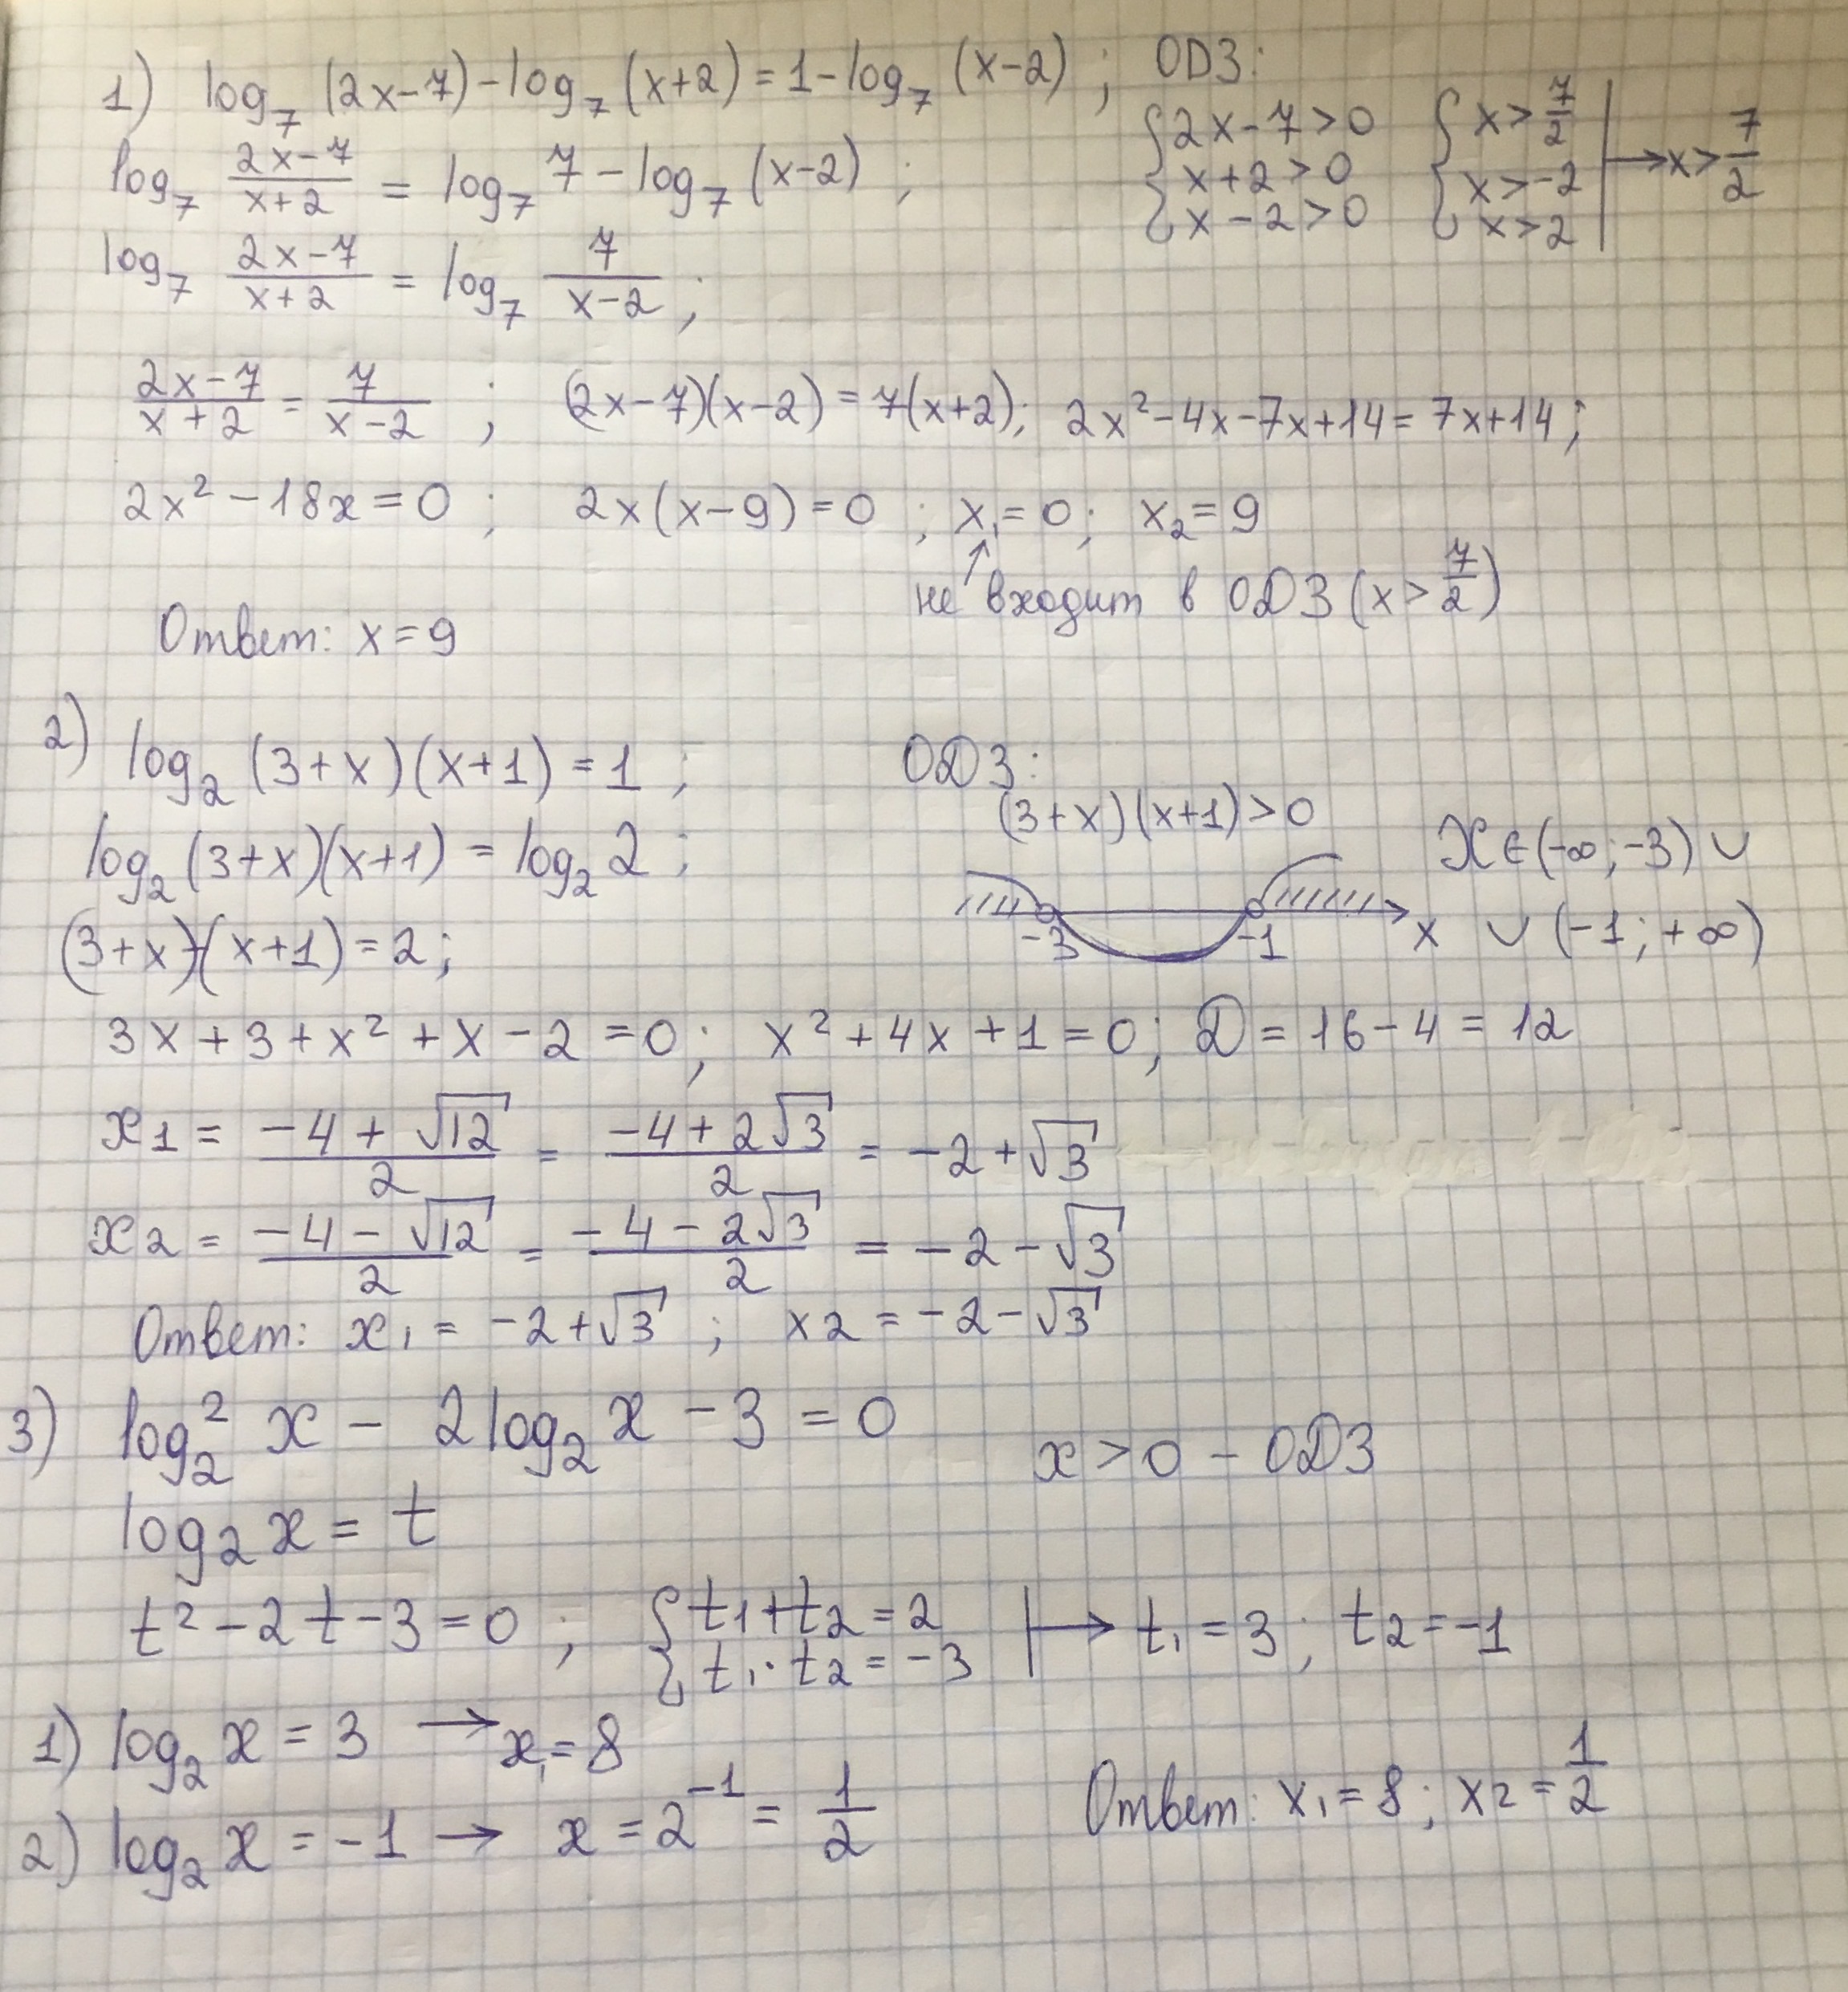 1) log₇ (2x-7) - log₇ (x+2) = 1 - log₇ (x-2) ; ОДЗ:
{2x-7>0 {x>7/2
x+2>0 x>-2
x-2>0 x>2 |→ x>7/2
log₇ (2x-7)/(x+2) = log₇ 7 - log₇ (x-2) ;
log₇ (2x-7)/(x+2) = log₇ 7/(x-2) ;
(2x-7)/(x+2) = 7/(x-2) ; (2x-7)(x-2) = 7(x+2); 2x²-4x-7x+14 = 7x+14;
2x² - 18x = 0 ; 2x(x-9) = 0 ; x₁ = 0; x₂ = 9
↑ не входит в ОДЗ (x > 7/2)
Ответ: x = 9
2) log₂ (3+x)(x+1) = 1 ; ОДЗ:
(3+x)(x+1) > 0
log₂ (3+x)(x+1) = log₂ 2 ; x ∈ (-∞; -3) ∪
-3 -1 x ∪ (-1; +∞)
(3+x)(x+1) = 2;
3x + 3 + x² + x - 2 = 0; x² + 4x + 1 = 0; D = 16 - 4 = 12
x1 = (-4 + √12)/2 = (-4 + 2√3)/2 = -2 + √3
x2 = (-4 - √12)/2 = (-4 - 2√3)/2 = -2 - √3
Ответ: x₁ = -2 + √3 ; x2 = -2 - √3
3) log₂² x - 2 log₂ x - 3 = 0 x > 0 - ОДЗ
log₂ x = t
t² - 2t - 3 = 0 ; {t1 + t2 = 2
t₁ · t2 = -3 |→ t₁ = 3; t2 = -1
1) log₂ x = 3 → x₁ = 8
2) log₂ x = -1 → x = 2⁻¹ = 1/2
Ответ: x₁ = 8; x2 = 1/2